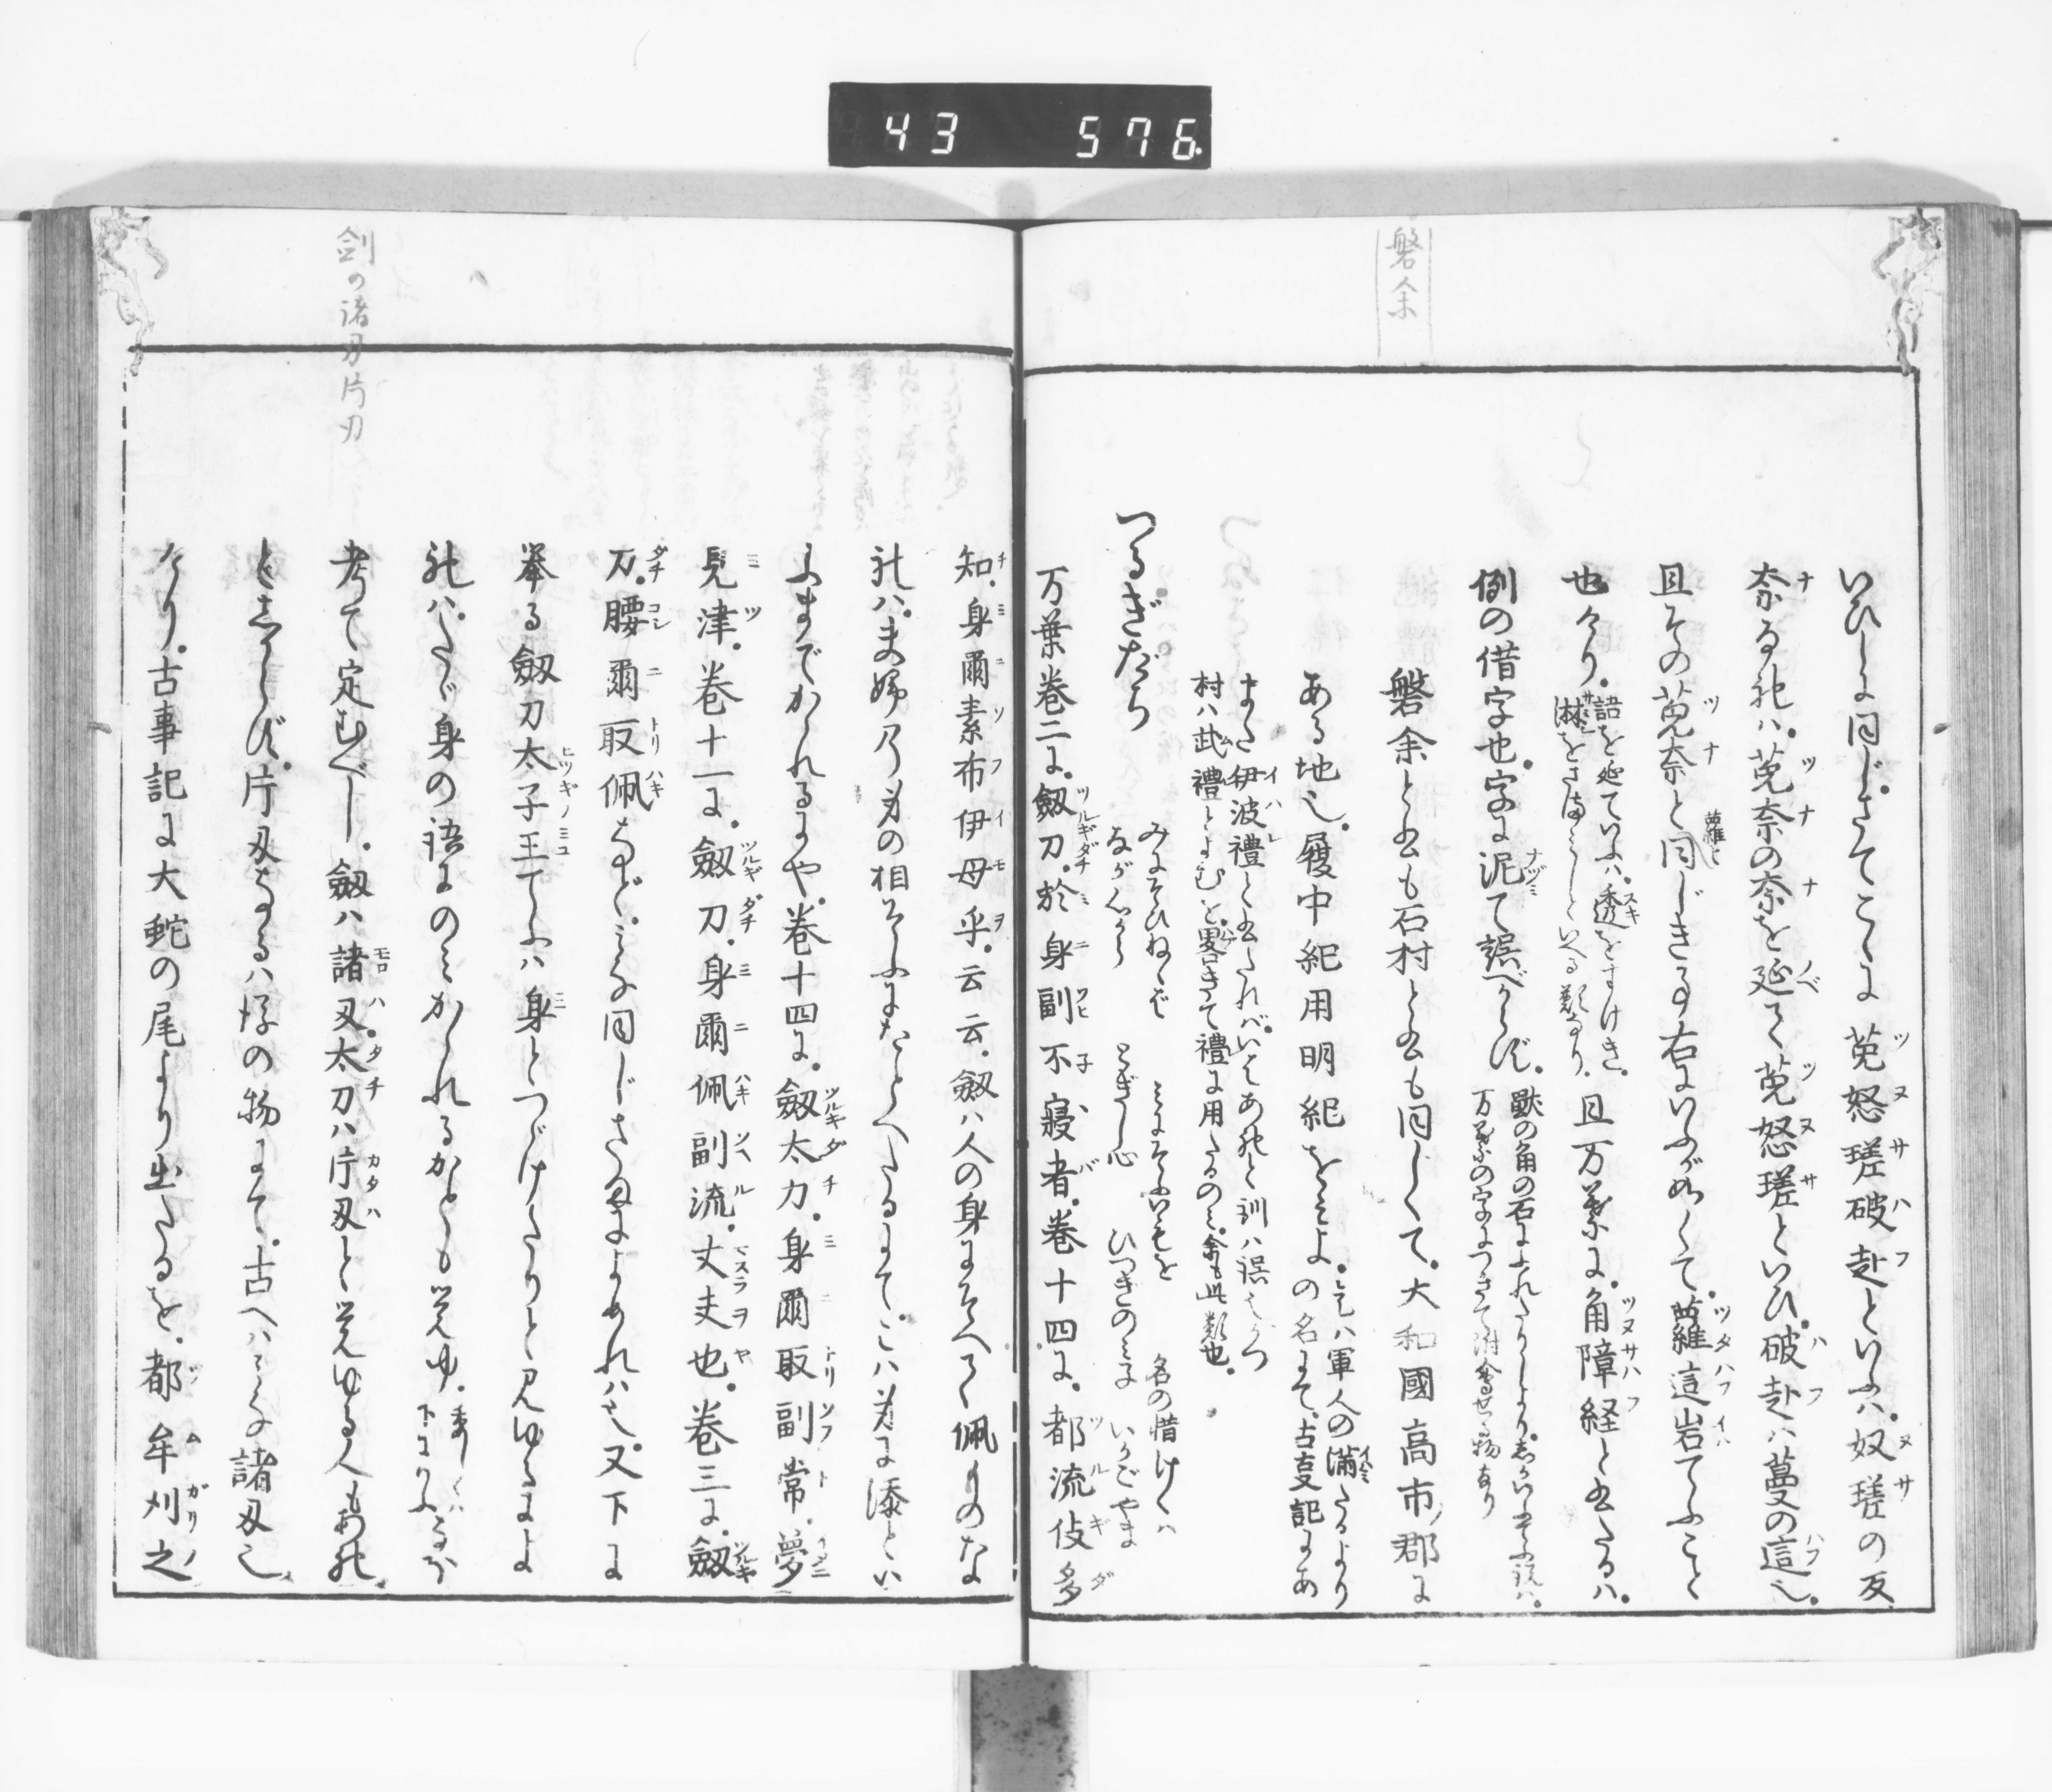 43 576
磐余
いひしに同じ。さてこゝに菟怒瑳破赴といふハ。奴瑳の反
奈る礼ハ。菟奈の奈を延て菟怒瑳といひ。破赴ハ蔓の這也。
且その菟奈と同じきる右にいふが如くて。蘿這岩てふこと
也けり。
語を延ていふハ。透をすけき。
淋をさぶしといへる類なり。
且万葉に。角障経と出たるハ。
例の借字也。字に泥て誤べからず。
獣の角の石にふれたりしより
万葉の字につきて附會せる物なり
磐余と出も石村と出も同しくて。大和國高市郡に
ある地也。履中紀用明紀をみよ。
是ハ軍人の満たるより
の名にて。古事記にあ
また伊波禮と出たれバ。
と訓ハ誤
村ハ武禮とよむを畧きて禮に用たるのミ。余も此類也。
つるぎだち
みにそひねゝば
ながくから
とぎし心
みにそふいもを
ひつぎのみこ
名の惜けくハ
いかごやま
万葉巻二に。劔刀。於身副不寝者。巻十四に。都流伎多
知。身爾素布伊母乎。云云。劔ハ人の身にそへて佩ものな
礼ハ。夫婦乃身の相そふにたとへたるにて。こハ身に添とい
ふまでかゝれるにや。巻十四に。劔太刀。身爾取副常。夢
見津。巻十一に。劔刀。身爾佩副流。丈夫也。巻三に。劔
刀。腰爾取佩など。みな同じさまによめれハ也。又下に
挙る劔刀太子王てふハ身とつゞけたりと見ゆるによ
礼ハ。たゞ身の語にのみかゝれるかとも覚ゆ。
委しくハ
下にいふ
考て定むべし。劔ハ諸刃。太刀ハ片刃と覚ゆる人もあれ
どしからず。片刃なるハ後の物にて。古へハみな諸刃也
けり。古事記に大蛇の尾より出たるを。都牟刈之
剣の諸刃片刃